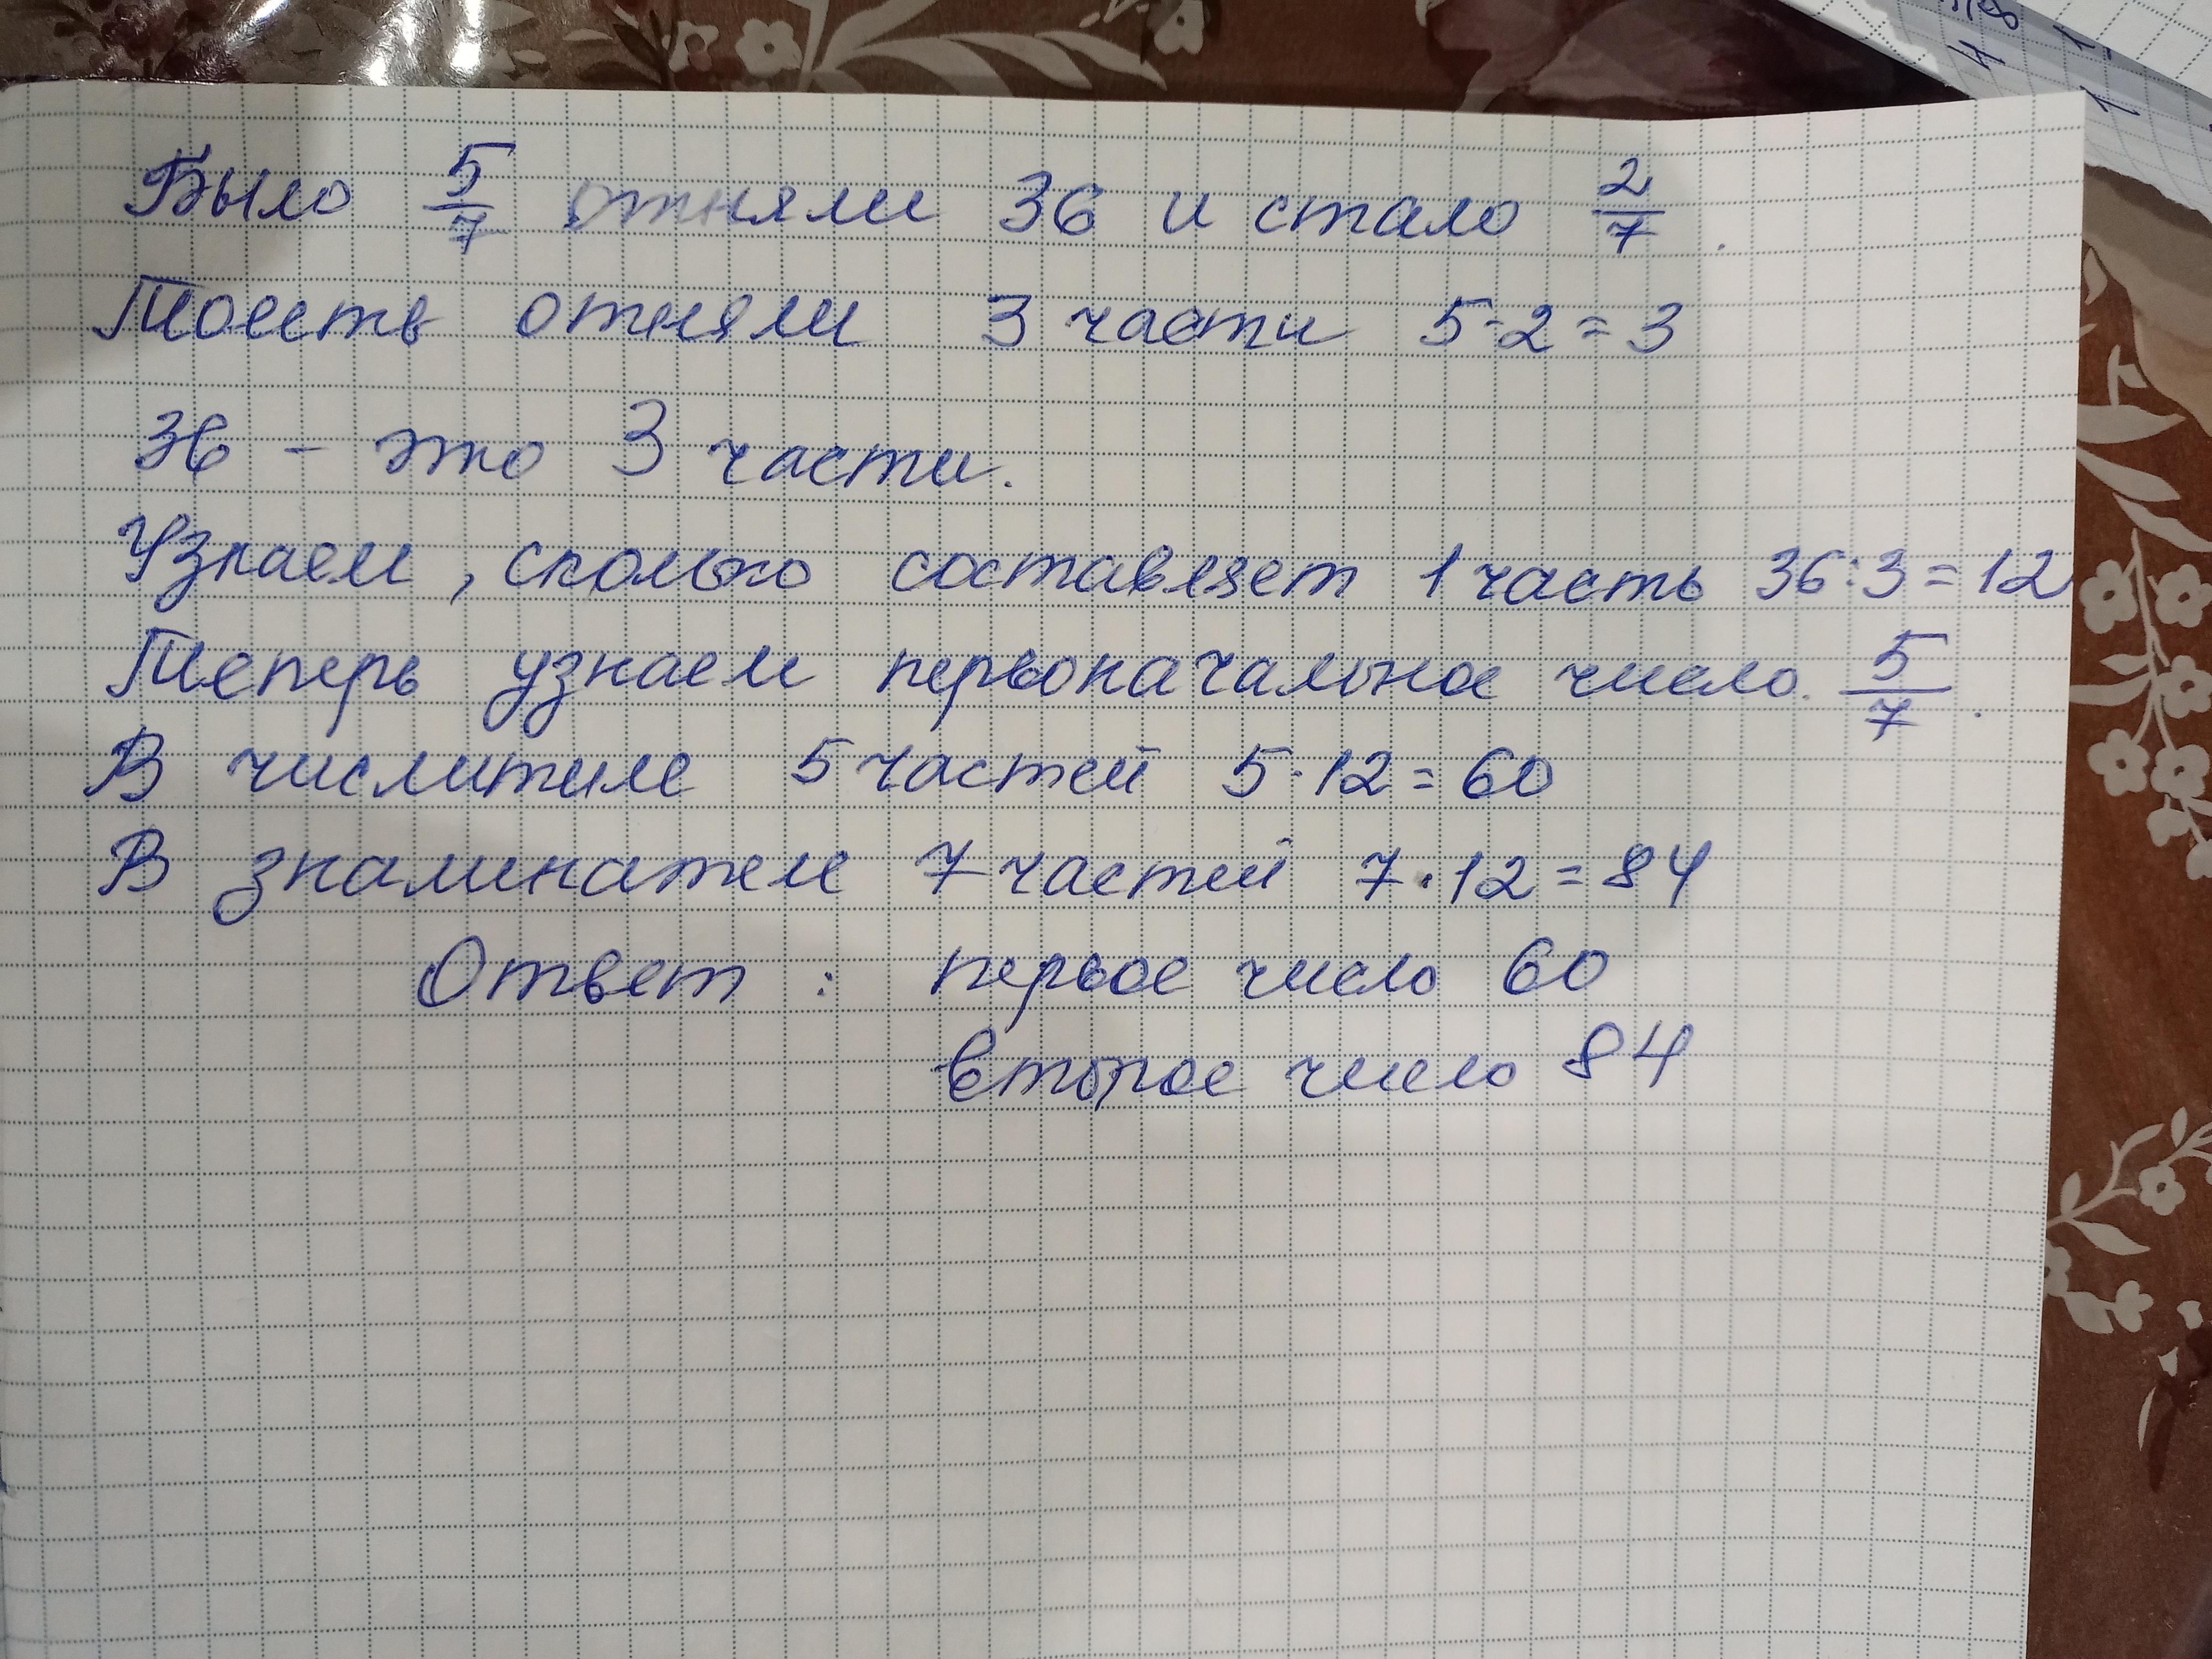 Было 5/7 отняли 36 и стало 2/7.
Тоесть отняли 3 части 5-2=3
36 - это 3 части.
Узнаем, сколько составляет 1 часть 36:3=12
Теперь узнаем первоначальное число. 5/7.
В числителе 5 частей 5·12=60
В знаминателе 7 частей 7·12=84
Ответ: первое число 60
второе число 84